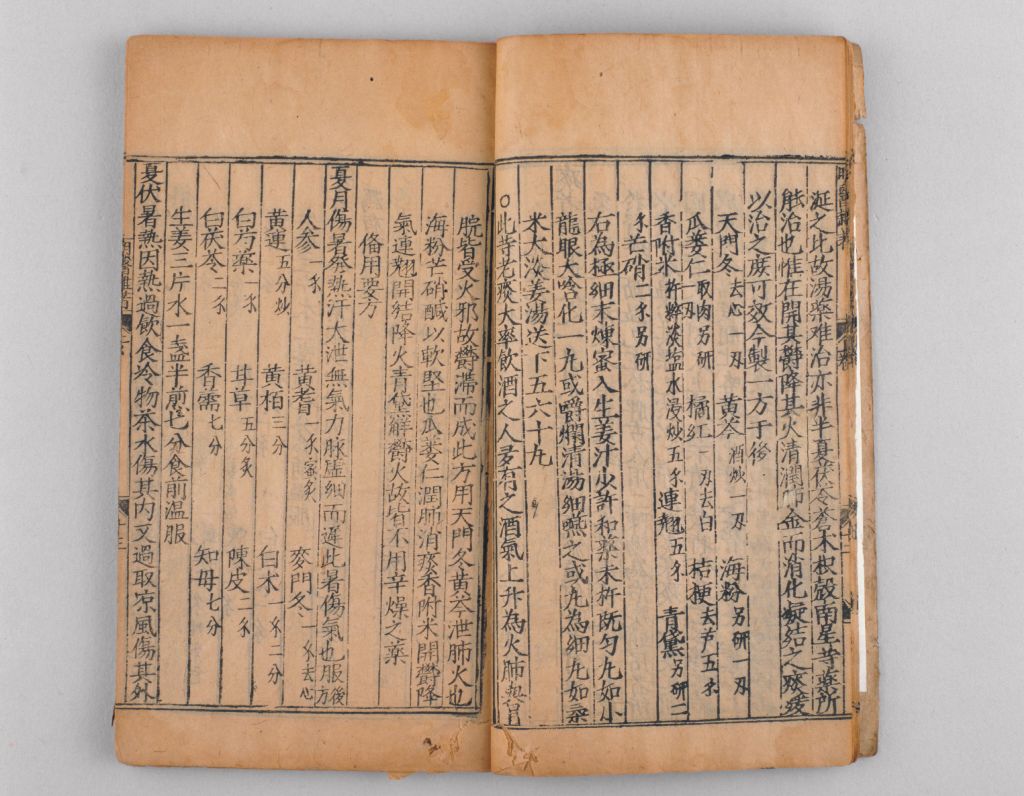 涎之此故湯藥难治亦非半夏茯苓蒼朮枳殼南星等藥所
能治也惟在開其欝降其火清潤肺金而消化凝結之痰緩
以治之庻可效今製一方于後
天門冬去心一刄 黄芩酒炒一刄 海粉另研一刄
瓜蒌仁取肉另研一刄 橘紅一刄去白 桔梗去芦五分
香附米杵粹淡塩水浸炒五分 連翹五分 青黛另研二
分 芒硝二分另研
右為極細末煉蜜入生姜汁少許和藥末杵既匀丸如小
龍眼大噙化一丸或嚼爛清湯細嚥之或丸為細丸如黍
米大淡姜湯送下五六十丸
○此等老痰大率飲酒之人多有之酒氣上升為火肺與胃
脘皆受火邪故欝滯而成此方用天門冬黄芩泄肺火也
海粉芒硝醎以軟堅也瓜蒌仁潤肺消痰香附米開欝降
氣連翹開結降火青黛觧欝火故皆不用辛燥之藥
俻用要方
夏月傷暑發熱汗大泄無氣力脉虚細而遲此暑傷氣也服後方
人参一分 黄耆一分蜜炙 麥門冬一分去心
黄連五分炒 黄柏三分 白术一分二分
白芍藥一分 甘草五分炙 陳皮二分
白茯苓二分 香薷七分 知母七分
生姜三片水一盞半煎七分食前温服
夏伏暑熱因熱過飲食冷物茶水傷其内又過取凉風傷其外